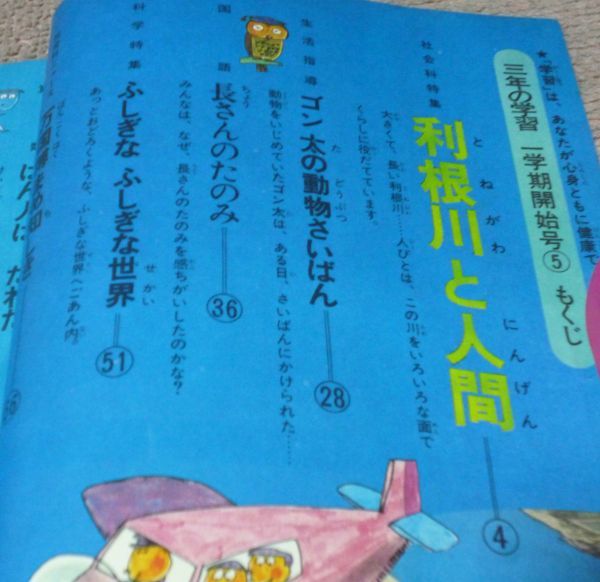 ★「学習」は、あなたが心身ともに健康で
三年の学習 一学期開始号⑤ もくじ
社会科特集
利根川と人間
とねがわ
にんげん
④
大きくて、長い利根川……人びとは、この川をいろいろな面で
くらしに役だてています。
生活指導
ゴン太の動物さいばん
た
どうぶつ
㉘
動物をいじめていたゴン太は、ある日、さいばんにかけられた……
国語
長さんのたのみ
ちょう
㊱
みんなは、なぜ、長さんのたのみを感ちがいしたのかな?
科学特集
ふしぎな ふしぎな世界
せかい
51
あっとおどろくような、ふしぎな世界へごあん内。